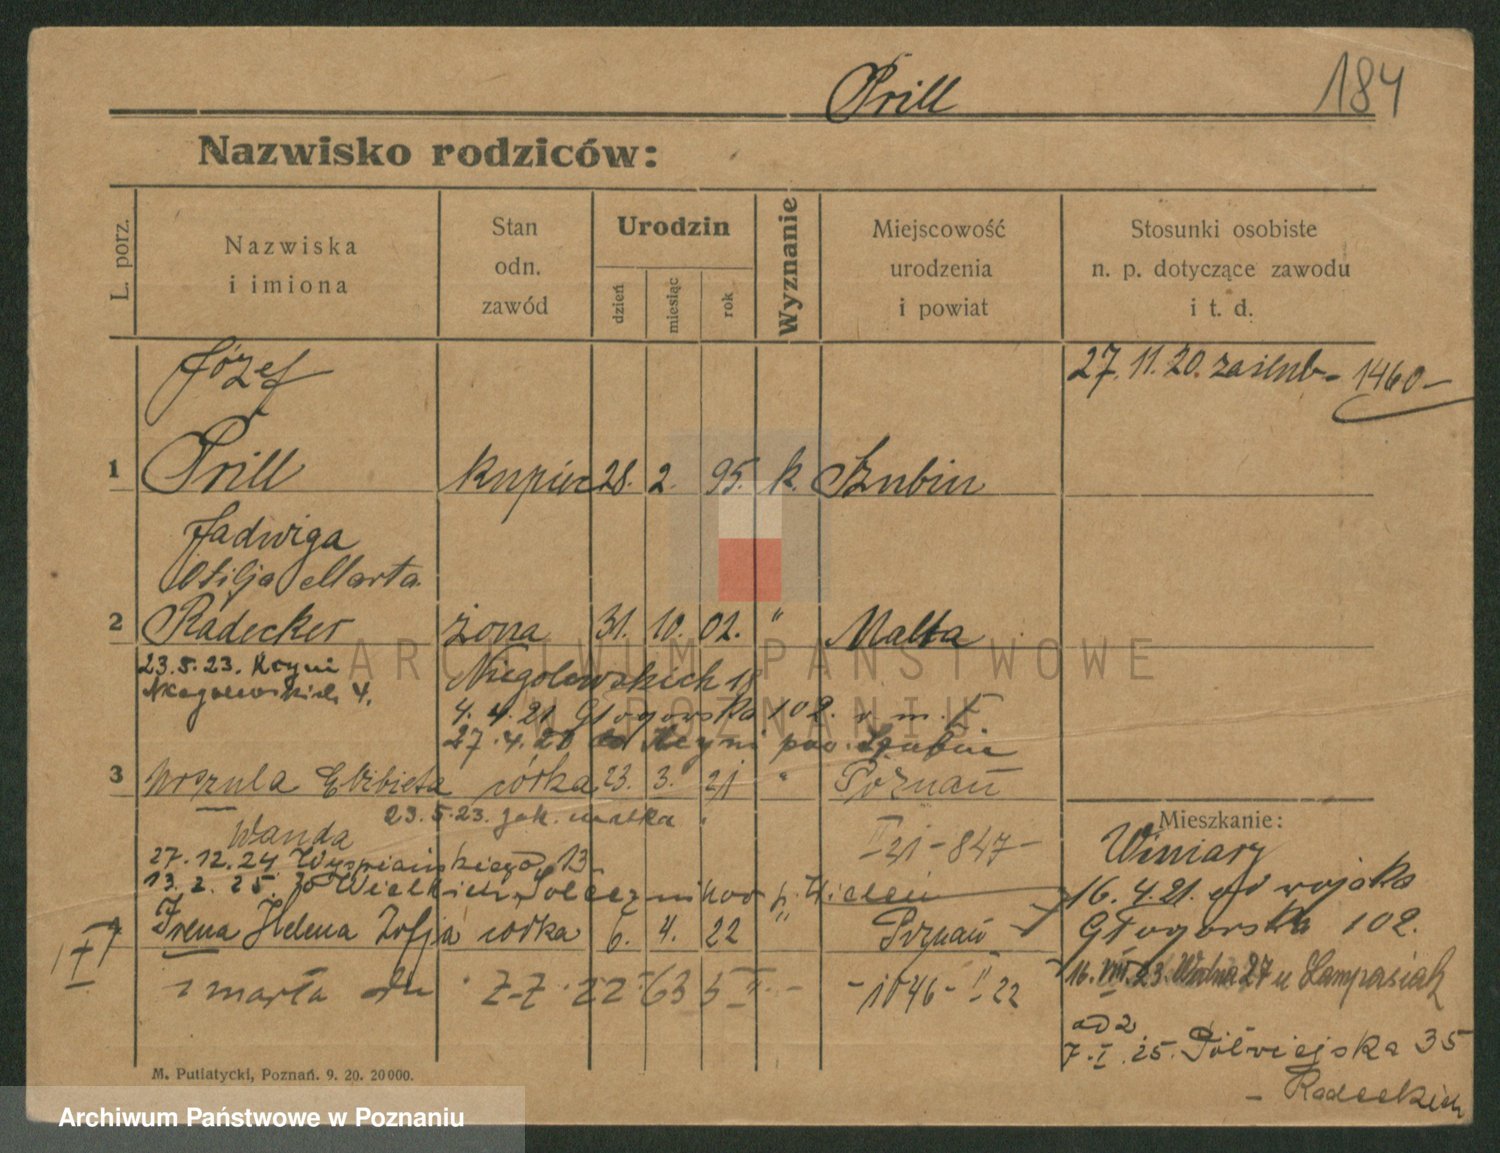 Prill
184
Nazwisko rodziców:
L. porz.
Nazwiska
i imiona
Stan
odn.
zawód
Urodzin
dzień
miesiąc
rok
Wyznanie
Miejscowość
urodzenia
i powiat
Stosunki osobiste
n. p. dotyczące zawodu
i t. d.
Józef
27. 11. 20. zaślub - 1460 -
1 Prill kupiec 28. 2. 95. k. Szubin
Jadwiga
Otilja Marta
2 Radecker żona 31. 10. 02. " Malta
23.5.23. Kcyni
4.
Niegolewskich 18
4. 4. 21 Głogowska 102.
27. 4. 20 Kcyni pow. Szubin
3 Urszula Elżbieta córka 23. 3. 21 " Poznań
23.5.23. jak matka
Wanda
II 21 - 847 -
Mieszkanie:
Winiary
27. 12. 24 Wyspiańskiego 13
13. 2. 25. Wielkich
16. 4. 21. od wojska
Głogowska 102.
Irena Helena Zofja córka 6. 4. 22 " Poznań
zmarła dn
- 1046 - II 22
16. VIII. 23. Wodna 27 u
ad 2
7. I. 25. Półwiejska 35
- Radeckich
M. Putiatycki, Poznań. 9. 20. 20000.
ARCHIWUM PAŃSTWOWE
W POZNANIU
Archiwum Państwowe w Poznaniu